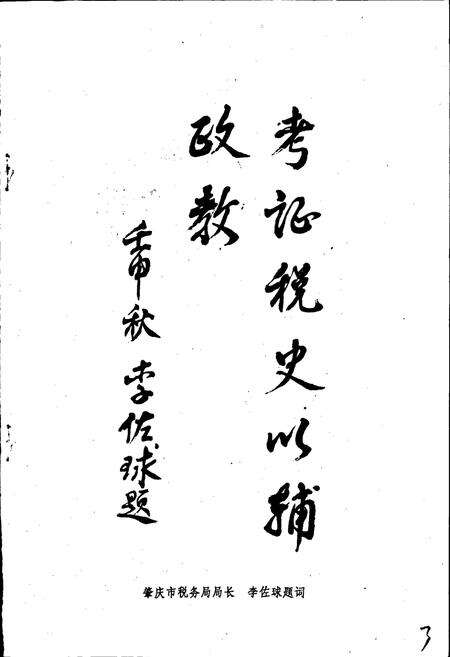 考证税史以辅
政教
壬申秋 李佐球题
肇庆市税务局局长 李佐球题词
3